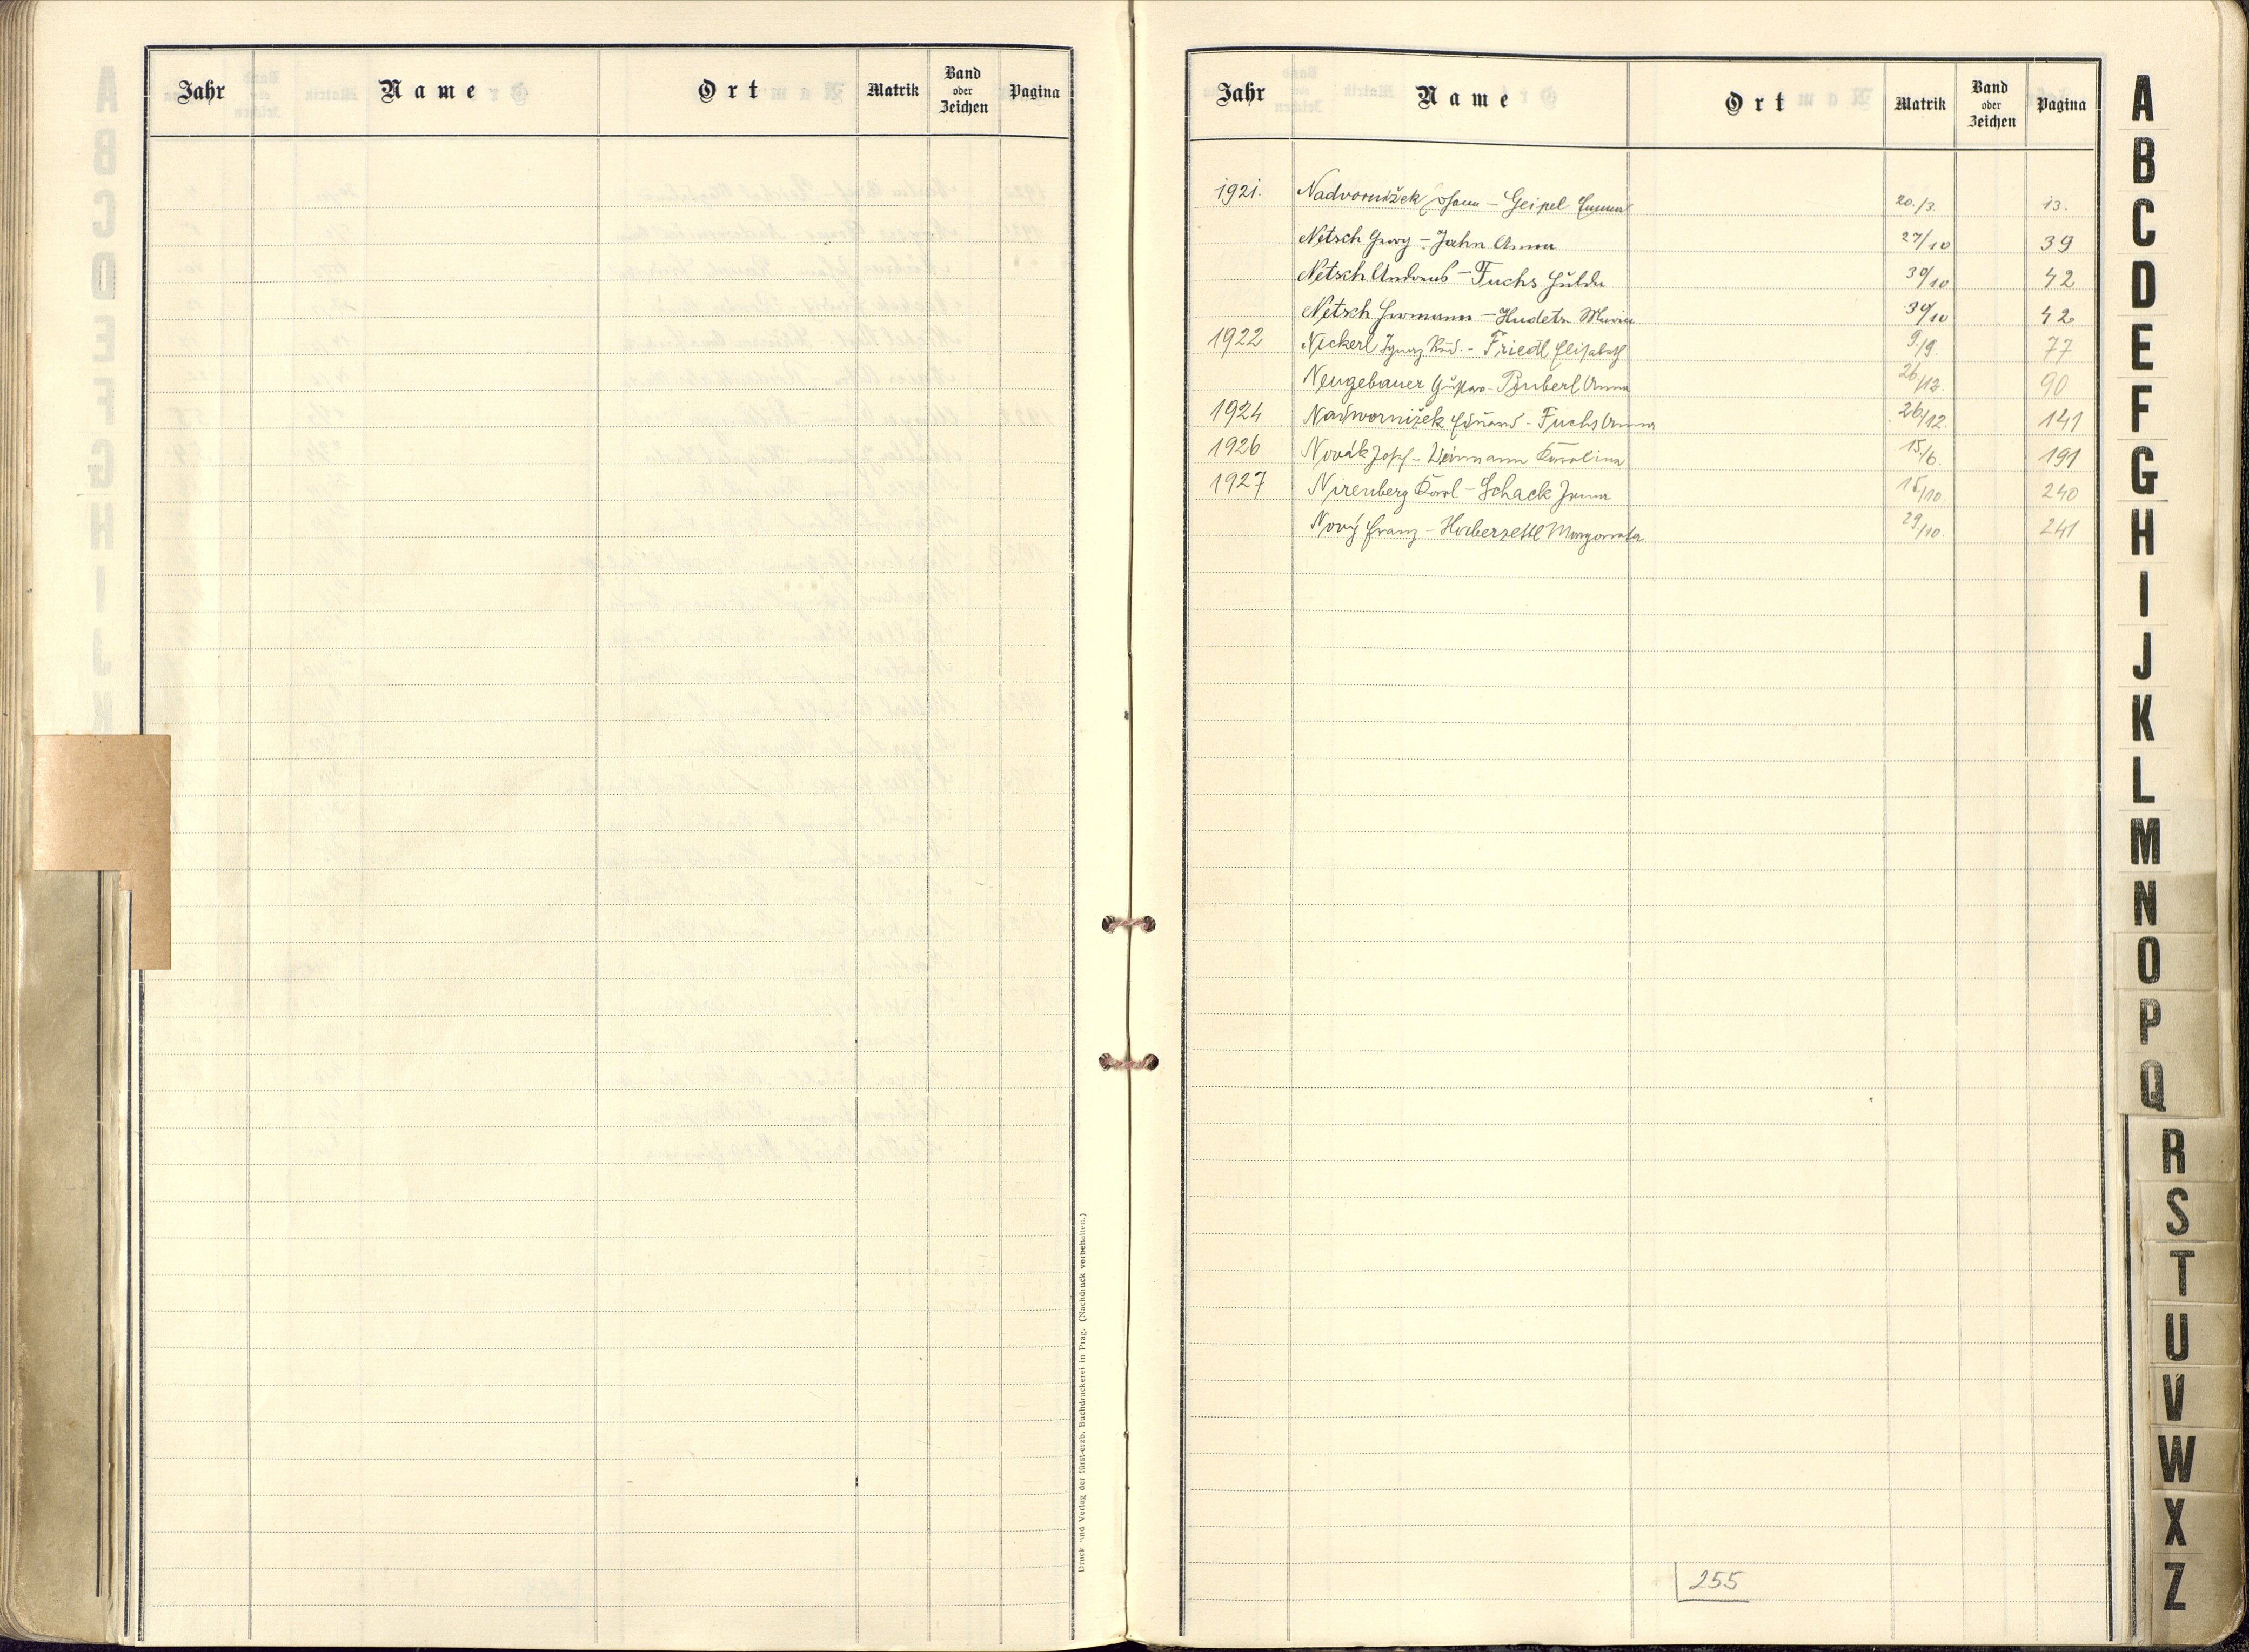 Jahr Name Ort Matrik Band oder Zeichen Pagina
Druck und Verlag der fürst-erzb. Buchdruckerei in Prag. (Nachdruck vorbehalten.)
Jahr Name Ort Matrik Band oder Zeichen Pagina
1921. Nadvornižek Johann – Geipel Emma 20./3. 13.
Netsch Georg – Jahn Anna 27/10 39
Netsch Andreas – Fuchs Hulda 30/10 42
Netsch Hermann – Hudetz Maria 30/10 42
1922 Nickerl Ignaz Rud. – Friedl Elisabeth 9./9. 77
Neugebauer Gustav – Buberl Anna 26/12. 90
1924 Nadwornižek Eduard – Fuchs Anna 26/12. 141
1926 Novák Josef – Karolina 15/6. 191
1927 Nirenberg Karl – Schack Irma 15/10. 240
Nový Franz – Haberzettl Margareta 29/10. 241
255
A
B
C
D
E
F
G
H
I
J
K
L
M
N
O
P
Q
R
S
T
U
V
W
X
Z